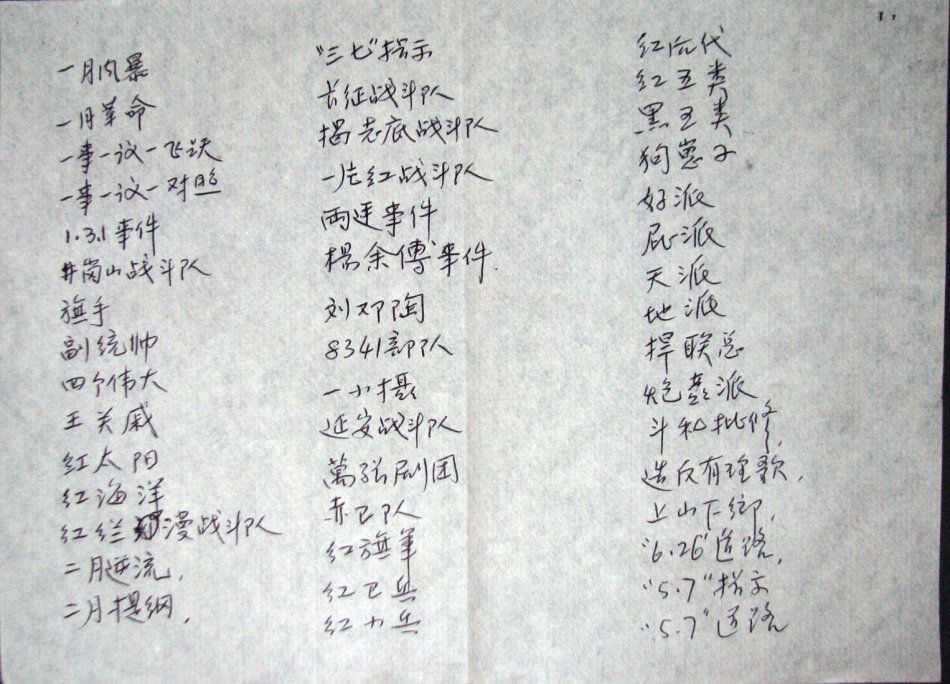 一月风暴
一月革命
一事一议一飞跃
一事一议一对照
1.31事件
井岗山战斗队
旗手
副统帅
四个伟大
王关戚
红太阳
红海洋
红烂漫战斗队
二月逆流,
二月提纲,
"三七"指示
长征战斗队
揭老底战斗队
一片红战斗队
两莛事件
楊余傅事件.
刘邓陶
8341部队
一小撮
延安战斗队
萬张剧团
赤卫队
红旗军
红卫兵
红小兵
红后代
红五类
黑五类
狗崽子
好派
屁派
天派
地派
捍联总
炮轰派
斗私批修,
造反有理歌,
上山下鄉,
"6.26"道路,
"5.7"指示
"5.7"道路